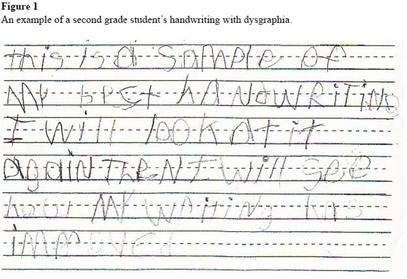 Figure 1
An example of a second grade student's handwriting with dysgraphia.
this is a SAMPle of
My best HANdWRiTiNg
I will look at it
AgaiN THeN I will see
how My wRiting has
iMMpoved